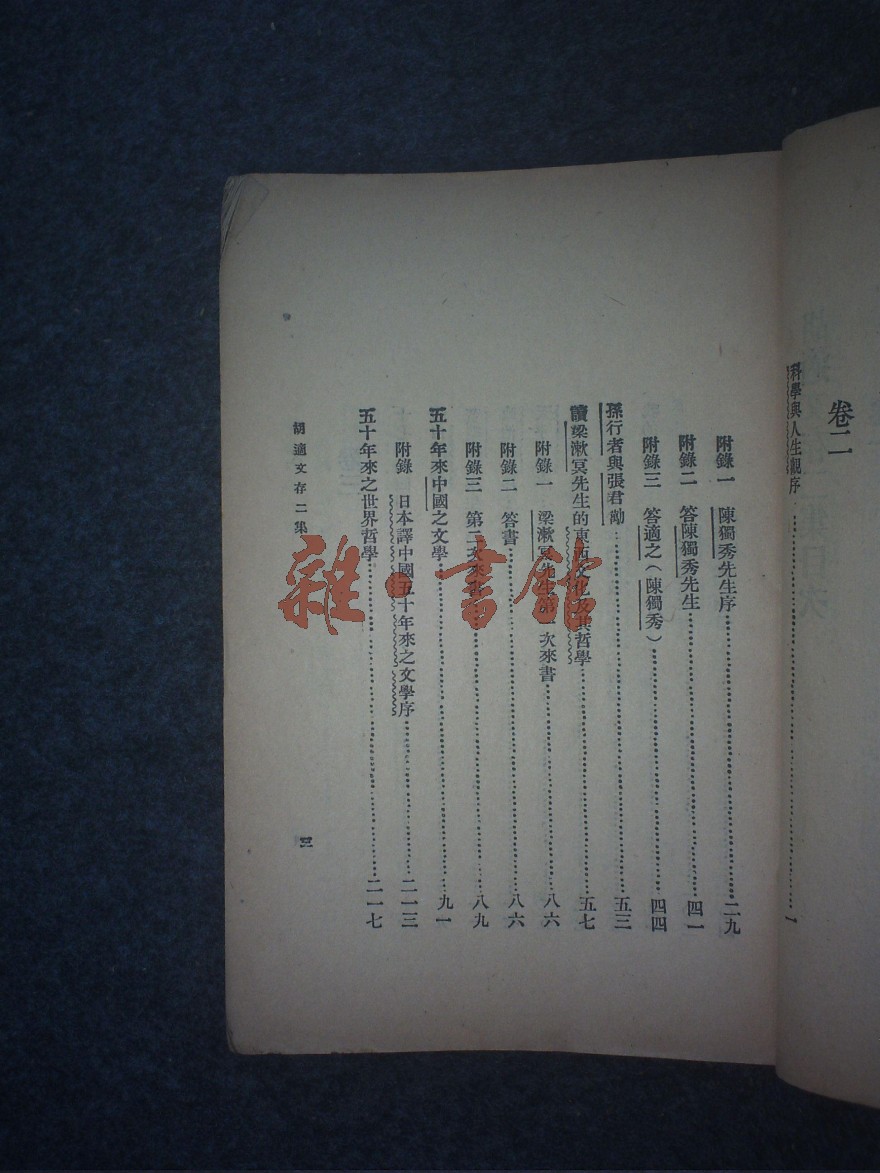 卷二
科學與人生觀序……一
附錄一　陳獨秀先生序……二九
附錄二　答陳獨秀先生……四一
附錄三　答適之（陳獨秀）……四四
孫行者與張君勱……五三
讀梁漱冥先生的東西文化及其哲學……五七
附錄一　梁漱冥先生第一次來書……八六
附錄二　答書……八六
附錄三　第二次來書……八九
五十年來中國之文學……九一
附錄　日本譯中國五十年來之文學序……二一三
五十年來之世界哲學……二一七
胡適文存二集
三
雜·書館